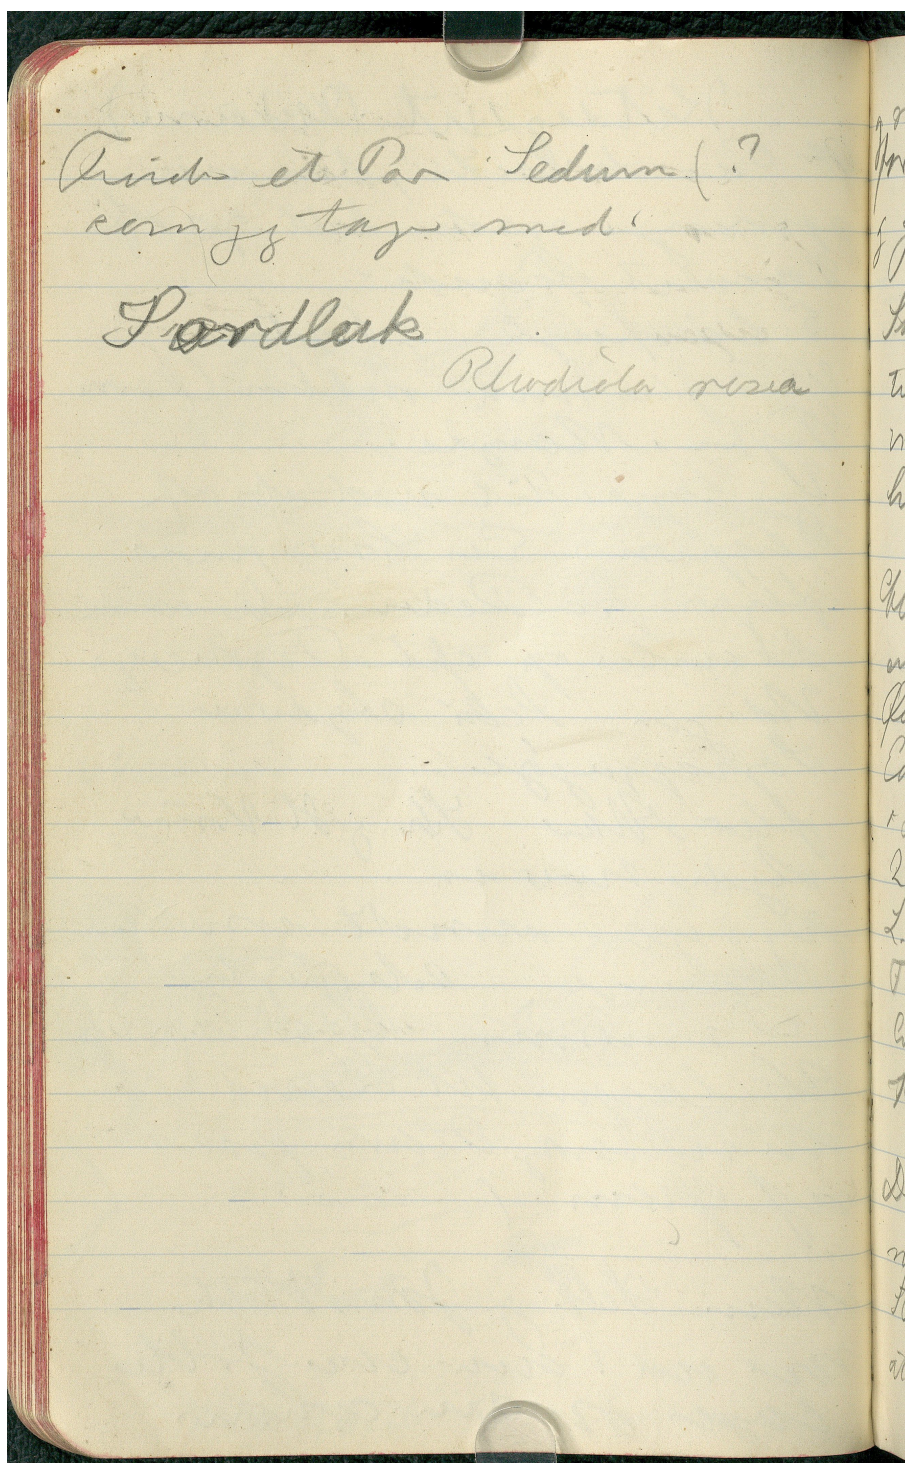 Finder et Par Sedum (?
som jeg tager med.
Sordlak
Rhodiola rosea